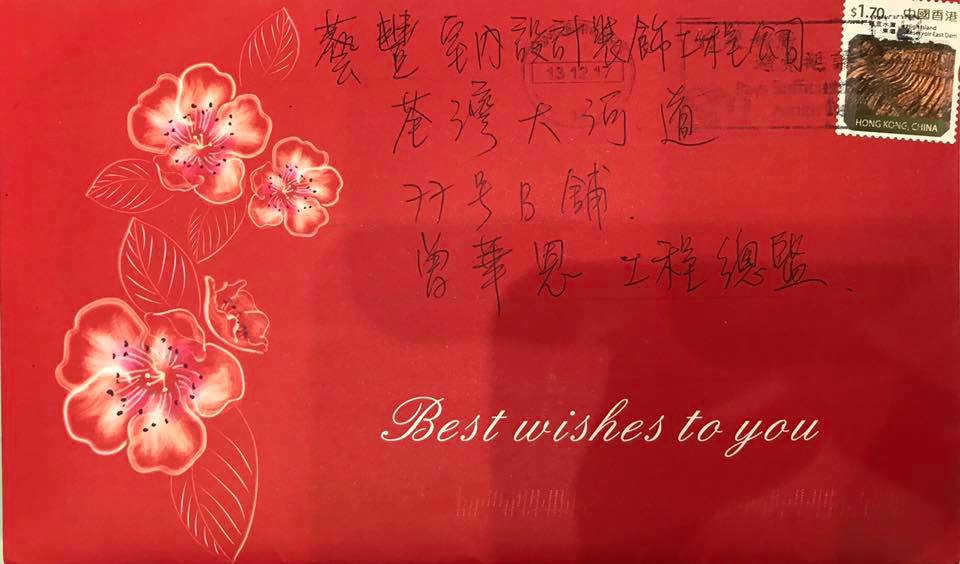 藝豐室内設計裝飾工程公司
荃灣大河道
77号B舖.
曾華恩 工程總監.
Best wishes to you
$1.70 中國香港
High Island
Reservoir East Dam
HONG KONG, CHINA
13 12 17